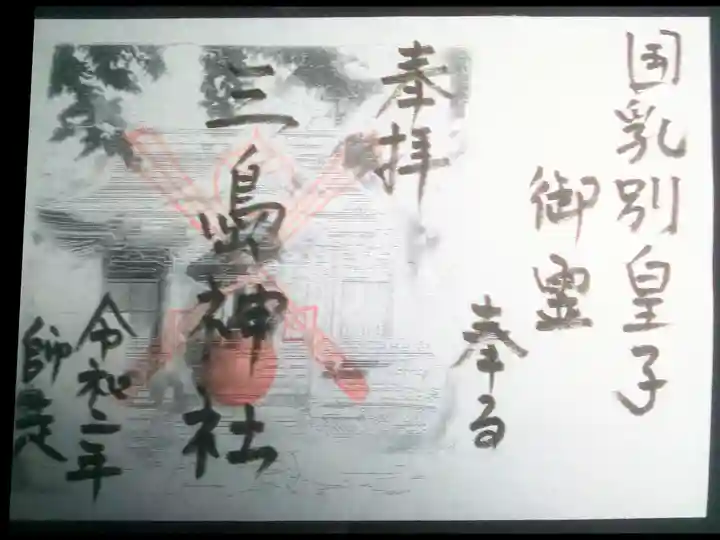 国乳別皇子
御霊
奉る
奉拝
三島神社
令和二年
師走